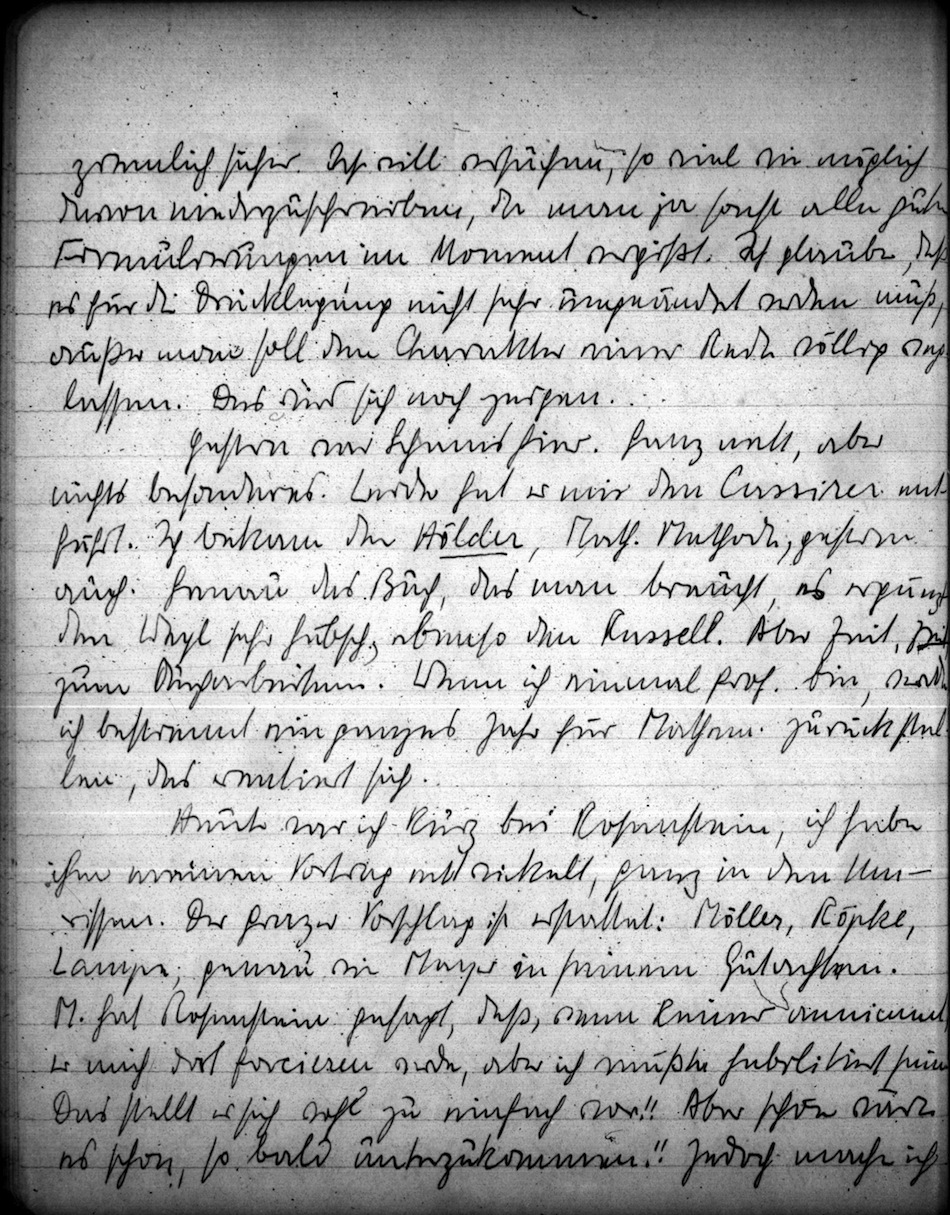 ziemlich sicher. Ich will versuchen, so viel wie möglich
davon niederzuschreiben, da man ja sonst alle guten
Formulierungen im Moment vergißt. Ich glaube, daß
es für die Drucklegung nicht sehr umgeändert werden muß,
außer man soll den Charakter einer Rede völlig weg
lassen. Das wird sich noch zeigen.
Gestern war Schams hier. Ganz nett, aber
nichts besonderes. Leider hat er mir den Cassirer ent-
führt. Ich bekam den Hölder, Math. Methode, gestern
auch. Genau das Buch, das man braucht, es ergänzt
den Weyl sehr hübsch, ebenso den Russell. Aber Zeit, Zeit
zum Durcharbeiten. Wenn ich einmal Prof. bin, werde
ich bestimmt ein ganzes Jahr für Mathem. zurückstel-
len, das rentiert sich.
Heute war ich kurz bei Rosenstein, ich habe
ihm meinen Vortrag entwickelt, ganz in den Um-
rissen. Der Grazer Vorschlag ist erstattet: Möller, Röpke,
Lampe, genau wie Mayer in seinem Gutachten.
M. hat Rosenstein gesagt, daß, wenn keiner annimmt
er mich dort forcieren werde, aber ich müßte habilitiert sein
Das stellt er sich wohl zu einfach vor!! Aber schön wäre
es schon, so bald unterzukommen!! Jedoch mache ich